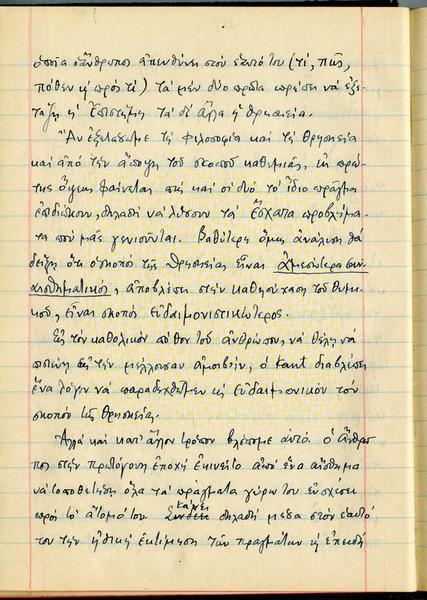 ὁποῖα ὁ ἄνθρωπος ἀπευθύνει στὸν ἑαυτό του (τί, πῶς,
πόθεν κι πρὸς τί) τὰ μὲν δύο πρῶτα μπορεῖ νὰ ἐξε-
τάζῃ ἡ Ἐπιστήμη τὰ δὲ ἄλλα ἡ θρησκεία.
Ἂν ἐξετάσωμε τὴ φιλοσοφία καὶ τὴ θρησκεία
καὶ ἀπὸ τὴν ἄποψη τοῦ σκοποῦ καθεμιᾶς, ἐκ πρώ-
της ὄψεως φαίνεται πὼς καὶ οἱ δυὸ τὸ ἴδιο πρᾶγμα
ἐπιδιώκουν, δηλαδὴ νὰ λύσουν τὰ ἔσχατα προβλήμα-
τα ποὺ μᾶς γεννιοῦνται. Βαθύτερη ὅμως ἀνάλυση θὰ
δείξῃ ὅτι ὁ σκοπὸς τῆς θρησκείας εἶναι ἀμεσώτερα συν-
αισθηματικός, ἀποβλέπει στὴν καθησύχαση τοῦ θυμι-
κοῦ, εἶναι σκοπὸς εὐδαιμονιστικώτερος.
Εἰς τὸν καθολικὸν πόθον τοῦ ἀνθρώπου, νὰ θέλῃ νὰ
πιστεύῃ εἰς τὴν μέλλουσαν ἀμοιβήν, ὁ Kant διαβλέπει
ἕνα λόγον νὰ παραδεχθῶμεν ὡς εὐδαιμονικὸν τὸν
σκοπὸν τῆς θρησκείας.
Ἀλλὰ καὶ κατ' ἄλλον τρόπον βλέπομε αὐτό. Ὁ ἄνθρω-
πος στὴν πρωτόγονη ἐποχὴ ἐκινεῖτο ἀπὸ ἕνα αἴσθημα
νὰ τοποθετήσῃ ὅλα τὰ πράγματα γύρω του ἐν σχέσει
πρὸς τὸ ἄτομό του. κάνει δηλαδὴ μέσα στὸν ἑαυτό
του τὴν ἠθικὴ ἐκτίμηση τῶν πραγμάτων κι ἐπειδὴ